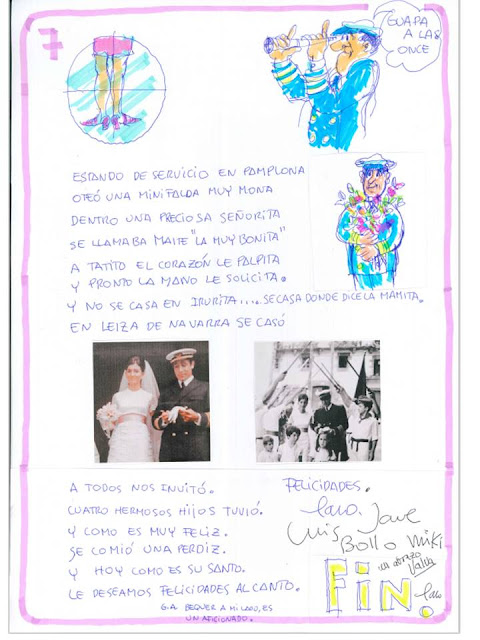 7
GUAPA
A LAS
ONCE
ESTANDO DE SERVICIO EN PAMPLONA
OTEÓ UNA MINIFALDA MUY MONA
DENTRO UNA PRECIOSA SEÑORITA
SE LLAMABA MAITE "LA MUY BONITA"
A TATITO EL CORAZÓN LE PALPITA
Y PRONTO LA MANO LE SOLICITA.
Y NO SE CASA EN IRURITA.... SE CASA DONDE DICE LA MAMITA.
EN LEIZA DE NAVARRA SE CASÓ
A TODOS NOS INVITÓ.
CUATRO HERMOSOS HIJOS TUVIÓ.
Y COMO ES MUY FELIZ.
SE COMIÓ UNA PERDIZ.
Y HOY COMO ES SU SANTO.
LE DESEAMOS FELICIDADES AL CANTO.
G.A. BEQUER A MI LADO, ES
UN AFICIONADO.
FELICIDADES.
Luis Jave
Bollo Miki
un abrazo
FIN.